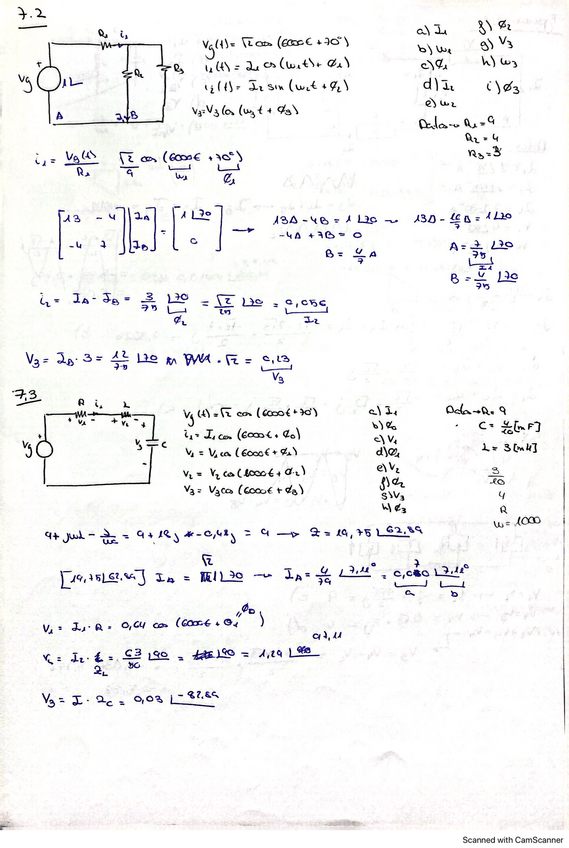 7.2
R₁ i₁
Vg 1∠ R₂ R₃
A J₂ B
Vg(t) = √2 cos (6000t + 70°)
i₁(t) = I₁ cos (ω₁t + φ₁)
i₂(t) = I₂ sin (ω₂t + φ₂)
V₃ = V₃ cos (ω₃t + φ₃)
a) I₁ f) φ₂
b) ω₁ g) V₃
c) φ₁ h) ω₃
d) I₂ i) φ₃
e) ω₂
Datos → R₁ = 9
R₂ = 4
R₃ = 3
i₁ = Vg(t)/R₁ √2/9 cos (6000t + 70°)
ω₁ φ₁
[13 -4; -4 7] [I_A; I_B] = [1∠70; 0] →
13A - 4B = 1∠70 ~ 13A - 16/7 A = 1∠70
-4A + 7B = 0
B = 4/7 A
A = 7/75 ∠70
I₁
B = 4/75 ∠70
i₂ = I_A - I_B = 3/75 ∠70 = √2/25 ∠70 = 0,056
φ₂ I₂
V₃ = I_B · 3 = 12/75 ∠70 · √2 = 0,23
V₃
7.3
R i₁ L
+ V₁ - + V₂ -
Vg V₃ C
Vg(t) = √2 cos (6000t + 70°)
i₁ = I₁ cos (6000t + φ₀)
V₁ = V₁ cos (6000t + φ₁)
V₂ = V₂ cos (6000t + φ₂)
V₃ = V₃ cos (6000t + φ₃)
a) I₁
b) φ₀
c) V₁
d) φ₁
e) V₂
f) φ₂
g) V₃
h) φ₃
Data → R = 9
C = 4/10 [mF]
L = 3 [mH]
3/10
4
R
ω = 1000
9 + jωL - j/ωC = 9 + 18j - 0,42j = 9 → Z = 19,75 ∠62,89
[19,75 ∠62,89] I_A = √2 ∠70 ~ I_A = 4/79 ∠7,11° = 0,070 ∠7,11°
a b
V₁ = I₁ · R = 0,64 cos (6000t + φ₁)
φ₀
V₂ = I₂ · Z_L = 63/90 ∠90 = ∠90 = 1,29 ∠97,11
V₃ = I · Z_C = 0,03 ∠-82,89
Scanned with CamScanner